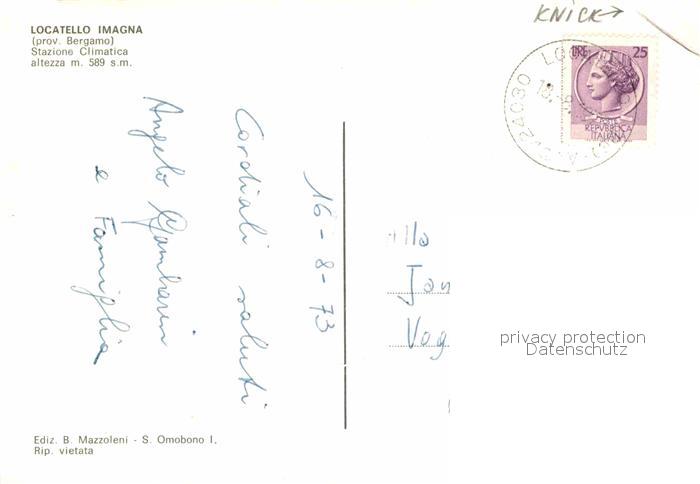 LOCATELLO IMAGNA
(prov. Bergamo)
Stazione Climatica
altezza m. 589 s.m.
KNICK→
LIRE 25
POSTE
REPVBBLICA
ITALIANA
24030 LOC
16-8-73
Cordiali saluti
Angelo Gambarin
e Famiglia
lla
Jan
Vog
privacy protection
Datenschutz
Ediz. B. Mazzoleni - S. Omobono I.
Rip. vietata